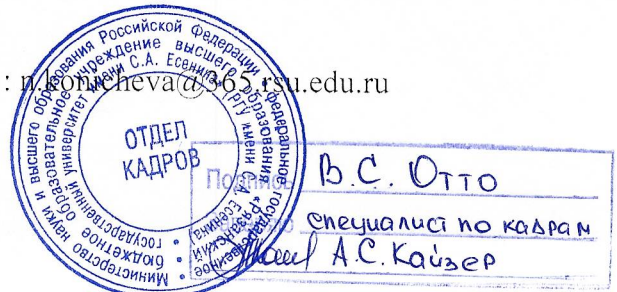 : n.konicheva@365.rsu.edu.ru
Министерство науки и высшего образования Российской Федерации • федеральное государственное
бюджетное образовательное учреждение высшего образования
государственный университет имени С.А. Есенина
(РГУ имени С.А. Есенина)
ОТДЕЛ
КАДРОВ
Подпись В.С. Отто
специалист по кадрам
А.С. Кайзер